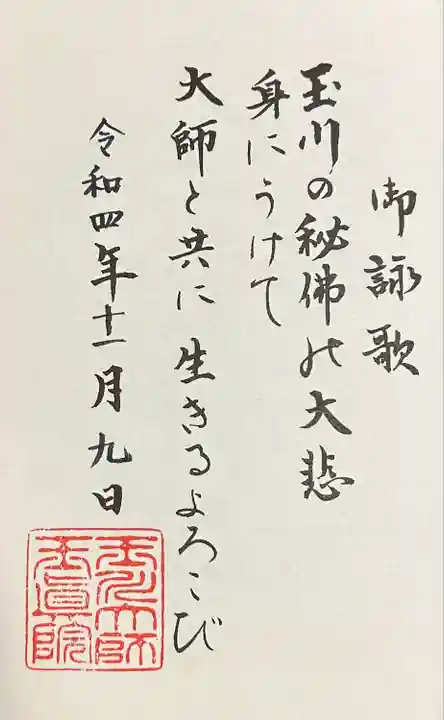 御詠歌
玉川の秘佛の大悲
身にうけて
大師と共に生きるよろこび
令和四年十一月九日
玉川大師
玉眞院